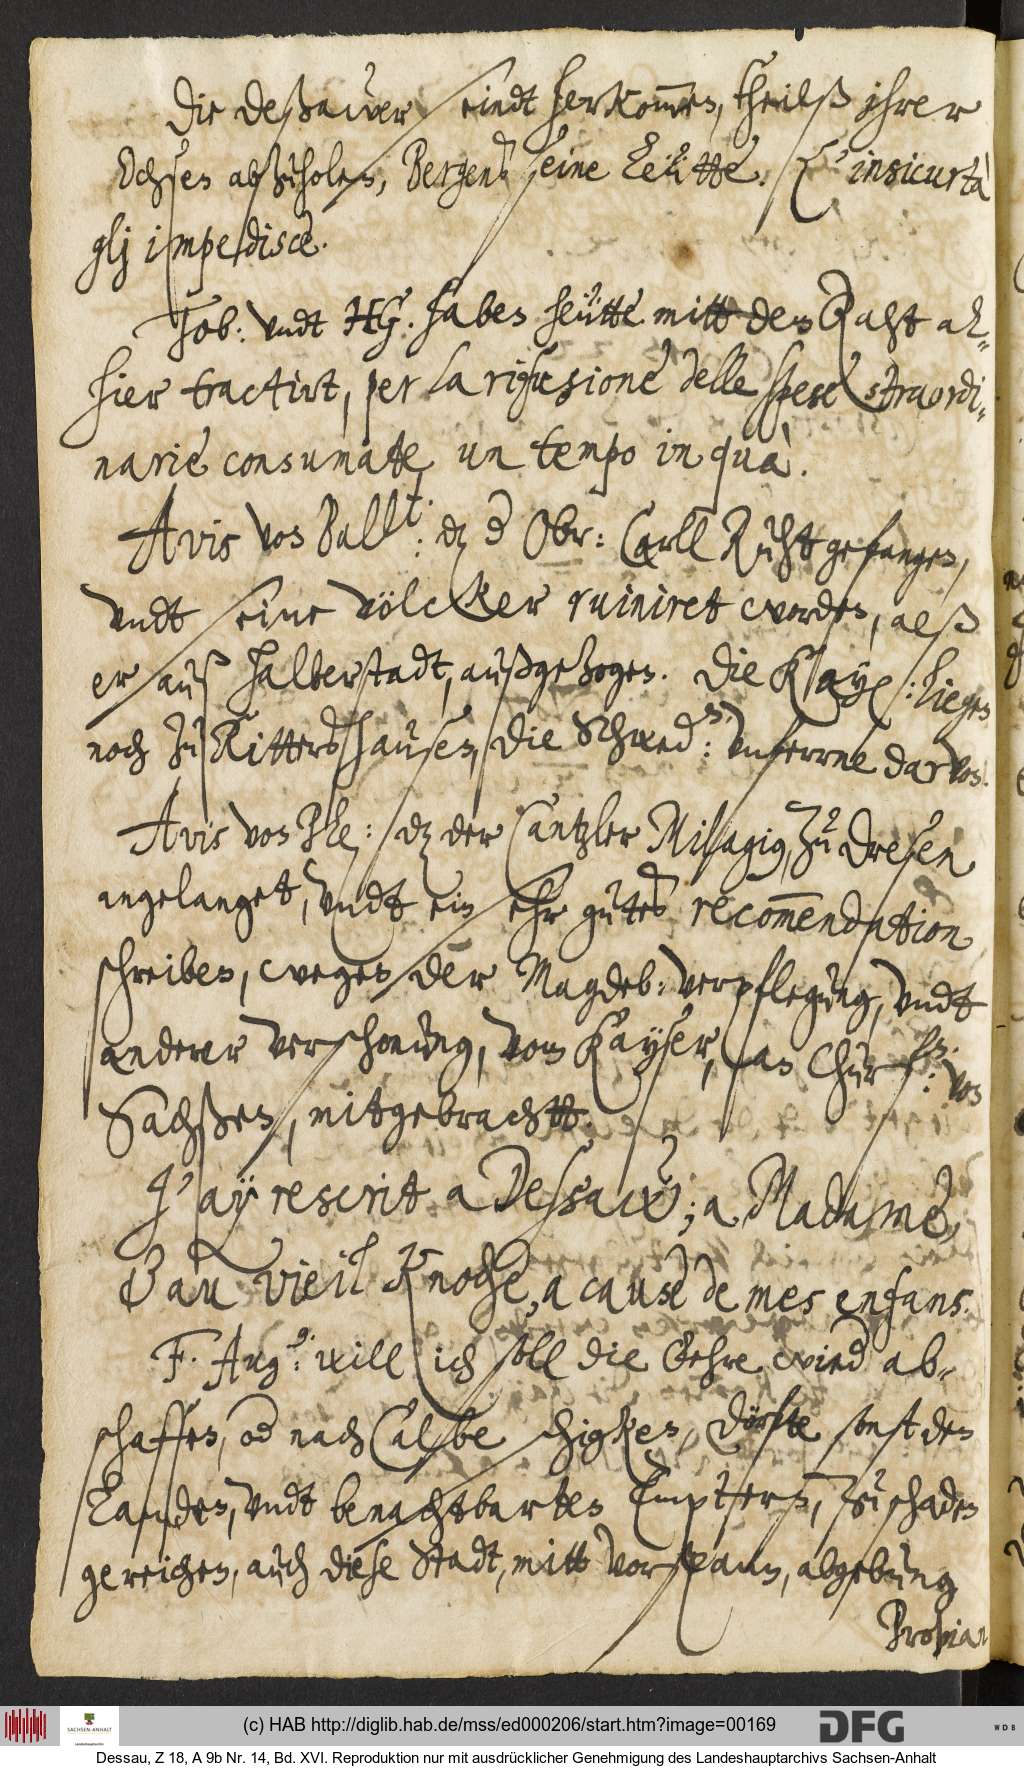 Die Deßawer seindt herkommen, theilß ihrer
Ochsen abzuholen, Bergens seine Leütte. L'insicurtà
glj impedisce.
Tob: vndt HG. haben heütte mitt dem Raht al-
hier tractirt, per la rifusione delle spese straordi-
narie consumate, un tempo in quà.
Avis von Ballst: dz d Obr: Carll Rücht gefangen,
vndt seine völcker ruiniret worden, alß
er auß Halberstadt, außgezogen. Die Kayl: liegen
noch zu Rittershausen, die Schwedn: vnferrne darvon.
Avis von Ple: dz der Cantzler Milagius, zu Dresen
angelanget, vndt ein sehr gutes recommendation
schreiben, wegen der Magdeb: verpflegung, vndt
anderer verschonung, vom Kayser, an Churfn: von
Sachßen, mitgebrachtt.
J'aÿ rescrit a Dessaw; a Madame,
& au vieil Knoche, a cause de mes enfans.
F. Augs: will ich soll die Gehre wied ab-
schaffen, od nach Calbe schigken, dörfte sonst den
Landen, vndt benachtbarten Emptern, zu schaden
gereichen, auch diese Stadt, mitt vorspann, abgebung
Provian
(c) HAB http://diglib.hab.de/mss/ed000206/start.htm?image=00169
SACHSEN-ANHALT
DFG
WDB
Dessau, Z 18, A 9b Nr. 14, Bd. XVI. Reproduktion nur mit ausdrücklicher Genehmigung des Landeshauptarchivs Sachsen-Anhalt